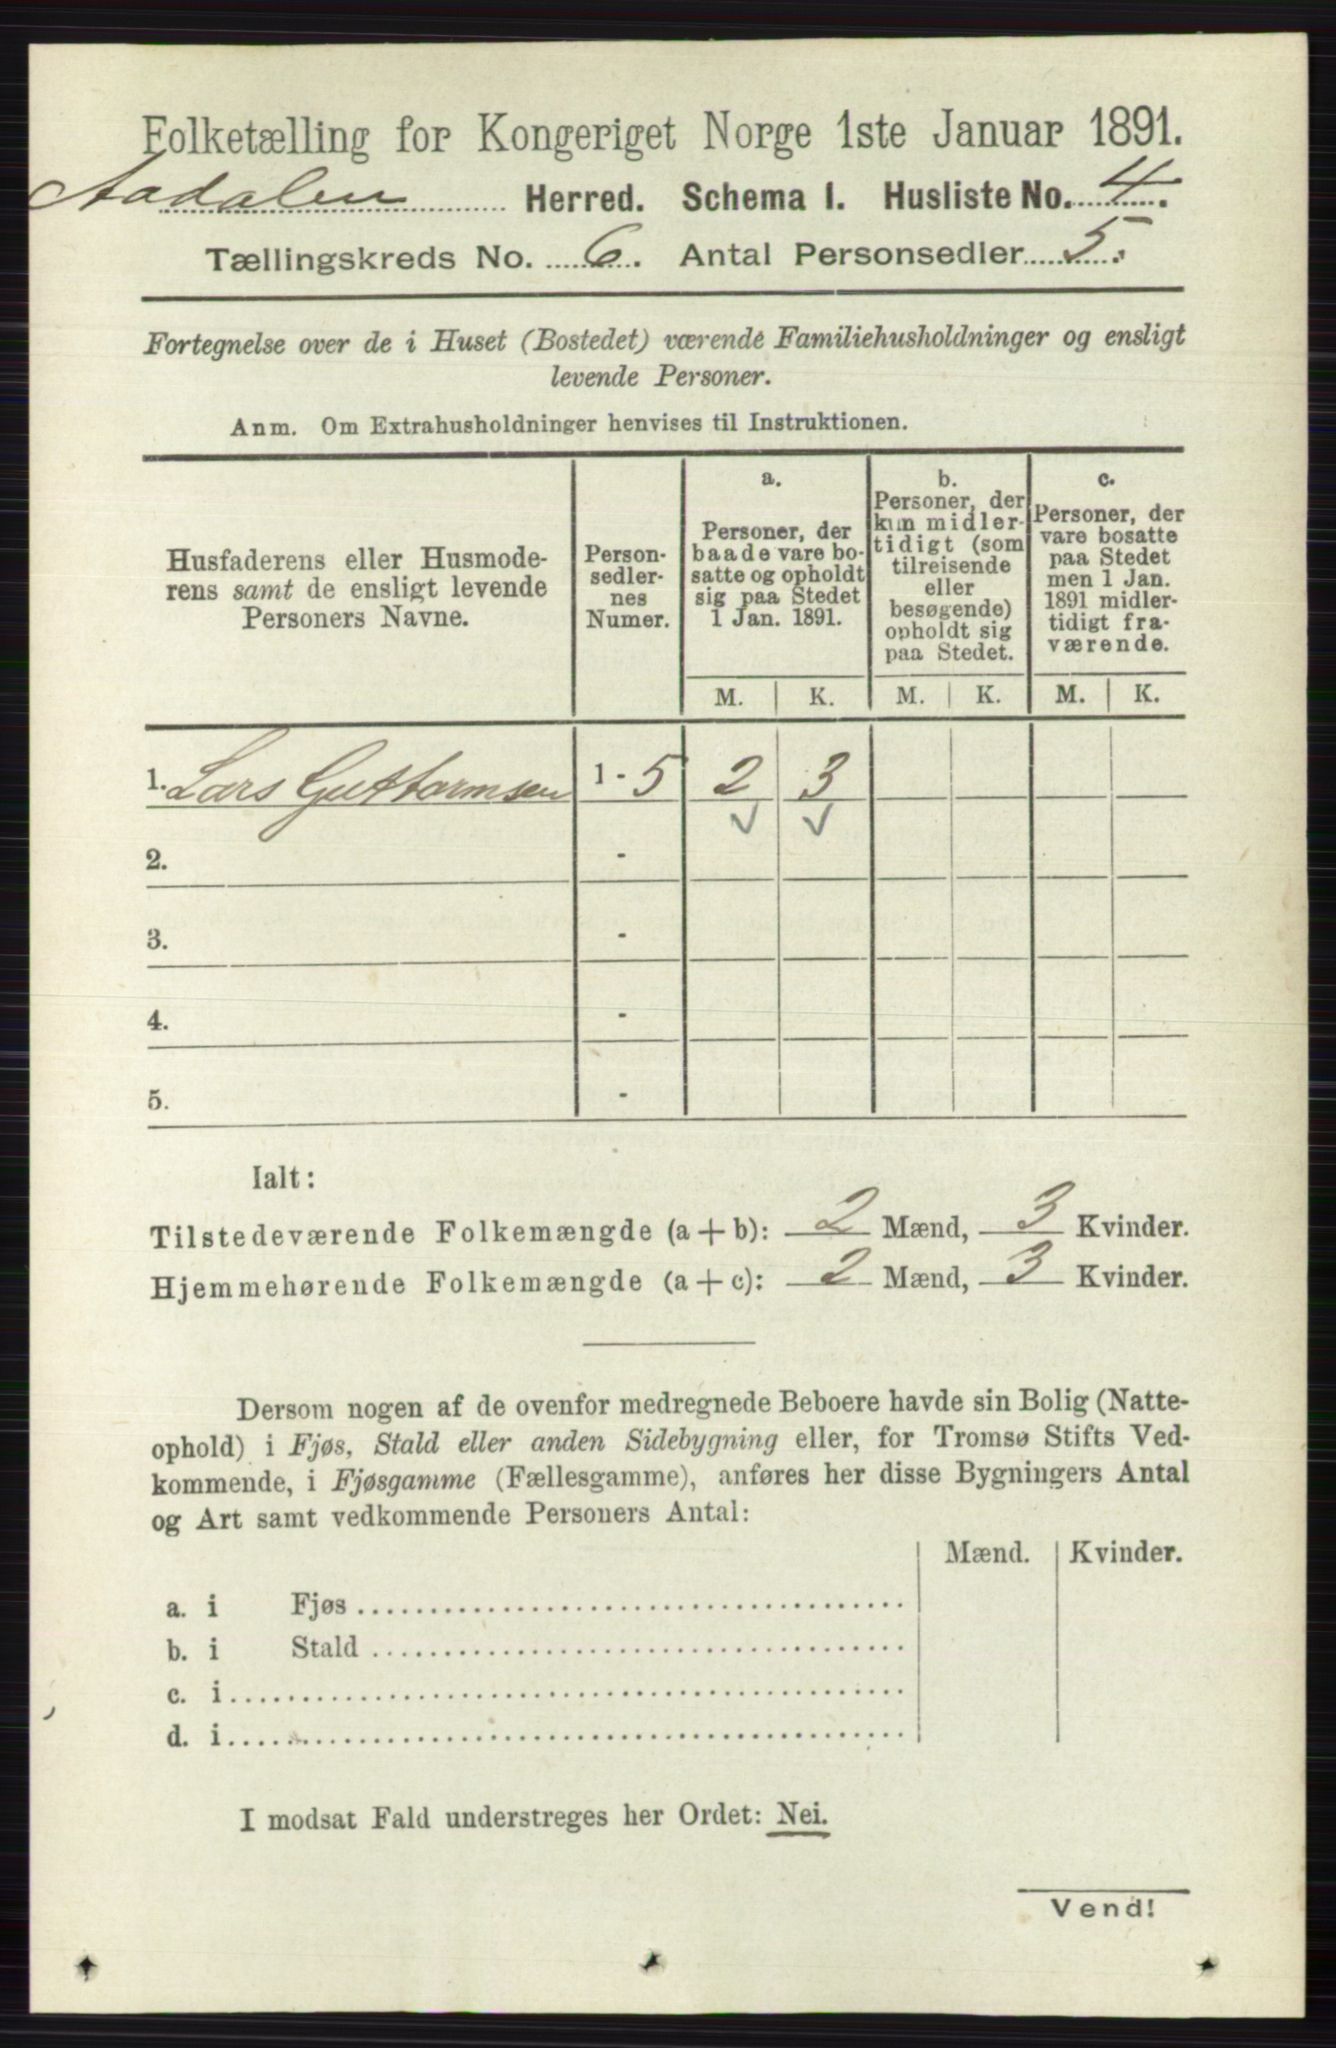 Folketælling for Kongeriget Norge 1ste Januar 1891.
Aadalen Herred. Schema I. Husliste No. 4.
Tællingskreds No. 6. Antal Personsedler 5.
Fortegnelse over de i Huset (Bostedet) værende Familiehusholdninger og ensligt
levende Personer.
Anm. Om Extrahusholdninger henvises til Instruktionen.
Husfaderens eller Husmode-
rens samt de ensligt levende
Personers Navne.
Person-
sedler-
nes
Numer.
a.
Personer, der
baade vare bo-
satte og opholdt
sig paa Stedet
1 Jan. 1891.
b.
Personer, der
kun midler-
tidigt (som
tilreisende
eller
besøgende)
opholdt sig
paa Stedet.
c.
Personer, der
vare bosatte
paa Stedet
men 1 Jan.
1891 midler-
tidigt fra-
værende.
M. K. M. K. M. K.
1. Lars Guttormsen 1 - 5 2 3
2. -
3. -
4. -
5. -
Ialt:
Tilstedeværende Folkemængde (a + b): 2 Mænd, 3 Kvinder.
Hjemmehørende Folkemængde (a + c): 2 Mænd, 3 Kvinder.
Dersom nogen af de ovenfor medregnede Beboere havde sin Bolig (Natte-
ophold) i Fjøs, Stald eller anden Sidebygning eller, for Tromsø Stifts Ved-
kommende, i Fjøsgamme (Fællesgamme), anføres her disse Bygningers Antal
og Art samt vedkommende Personers Antal:
Mænd. Kvinder.
a. i Fjøs
b. i Stald
c. i
d. i
I modsat Fald understreges her Ordet: Nei.
Vend!